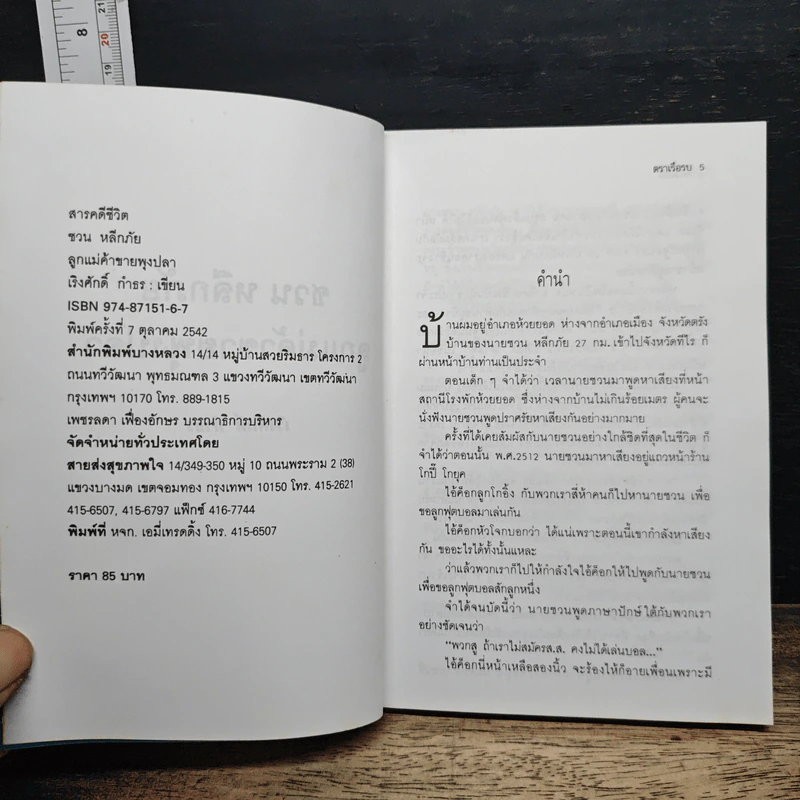 8
21
20
19
สารคดีชีวิต
ชวน หลีกภัย
ลูกแม่ค้าขายพุงปลา
เริงศักดิ์ กำธร : เขียน
ISBN 974-87151-6-7
พิมพ์ครั้งที่ 7 ตุลาคม 2542
สำนักพิมพ์บางหลวง 14/14 หมู่บ้านสวยริมธาร โครงการ 2
ถนนทวีวัฒนา พุทธมณฑล 3 แขวงทวีวัฒนา เขตทวีวัฒนา
กรุงเทพฯ 10170 โทร. 889-1815
เพชรลดา เฟื่องอักษร บรรณาธิการบริหาร
จัดจำหน่ายทั่วประเทศโดย
สายส่งสุขภาพใจ 14/349-350 หมู่ 10 ถนนพระราม 2 (38)
แขวงบางมด เขตจอมทอง กรุงเทพฯ 10150 โทร. 415-2621
415-6507, 415-6797 แฟ็กซ์ 416-7744
พิมพ์ที่ หจก. เอมี่เทรดดิ้ง โทร. 415-6507
ราคา 85 บาท
ตราเรือรบ 5
คำนำ
บ้านผมอยู่อำเภอห้วยยอด ห่างจากอำเภอเมือง จังหวัดตรัง
บ้านของนายชวน หลีกภัย 27 กม. เข้าไปจังหวัดทีไร ก็
ผ่านหน้าบ้านท่านเป็นประจำ
ตอนเด็ก ๆ จำได้ว่า เวลานายชวนมาพูดหาเสียงที่หน้า
สถานีโรงพักห้วยยอด ซึ่งห่างจากบ้านไม่เกินร้อยเมตร ผู้คนจะ
นั่งฟังนายชวนพูดปราศรัยหาเสียงกันอย่างมากมาย
ครั้งที่ได้เคยสัมผัสกับนายชวนอย่างใกล้ชิดที่สุดในชีวิต ก็
จำได้ว่าตอนนั้น พ.ศ.2512 นายชวนมาหาเสียงอยู่แถวหน้าร้าน
โกปี้ โกยุค
ไอ้ค็อกลูกโกอิ้ง กับพวกเราสี่ห้าคนก็ไปหานายชวน เพื่อ
ขอลูกฟุตบอลมาเล่นกัน
ไอ้ค็อกหัวโจกบอกว่า ได้แน่เพราะตอนนี้เขากำลังหาเสียง
กัน ขออะไรได้ทั้งนั้นแหละ
ว่าแล้วพวกเราก็ไปให้กำลังใจไอ้ค็อกให้ไปพูดกับนายชวน
เพื่อขอลูกฟุตบอลสักลูกหนึ่ง
จำได้จนบัดนี้ว่า นายชวนพูดภาษาปักษ์ใต้กับพวกเรา
อย่างชัดเจนว่า
"พวกสู ถ้าเราไม่สมัครส.ส. คงไม่ได้เล่นบอล..."
ไอ้ค็อกนี่หน้าเหลือสองนิ้ว จะร้องไห้ก็อายเพื่อนเพราะมี